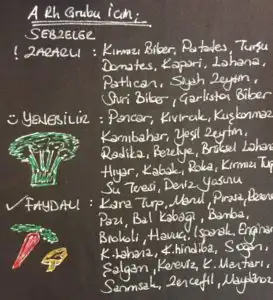 A Rh Grubu için:
SEBZELER
! ZARARLI : Kırmızı Biber, Patates, Turşu
Domates, Kapari, Lahana,
Patlıcan, Siyah Zeytin,
Sivri Biber, Garlista Biber
☺ YENEBİLİR : Pancar, Kıvırcık, Kuşkonmaz
Karnıbahar, Yeşil Zeytin,
Radika, Bezelye, Brüksel Lahana
Hıyar, Kabak, Roka, Kırmızı Turp
Su Teresi, Deniz Yosunu
✓ FAYDALI : Kara Turp, Marul, Pırasa,
Pazı, Bal Kabağı, Bamba,
Brokoli, Havuç, Ispanak, Enginar
K.Lahana, K.hindiba, Soğan,
Şalgam, Kereviz, K.Mantarı,
Sarımsak, Zencefil, Maydanoz